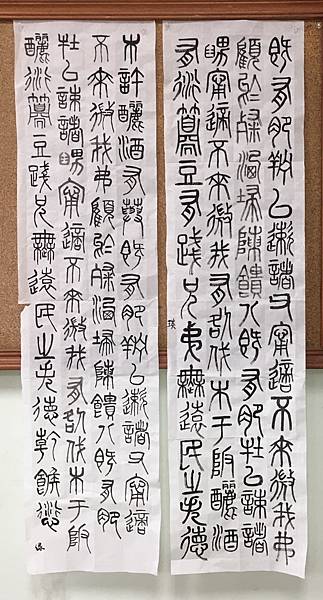 既有肥羜以遬諸父寧適不來微我弗
顧於粲洒埽陳饋八既有肥牡以速諸
舅寧適不來微我有咎伐木于阪釃酒
有衍籩豆有踐兄弟無遠民之失德
木許釃酒有藇既有肥羜以遬諸父寧適
不來微我弗顧於粲洒埽陳饋八既有肥
牡以速諸舅寧適不來微我有咎伐木于阪
釃衍籩豆踐兄無遠民之失德乾餱愆